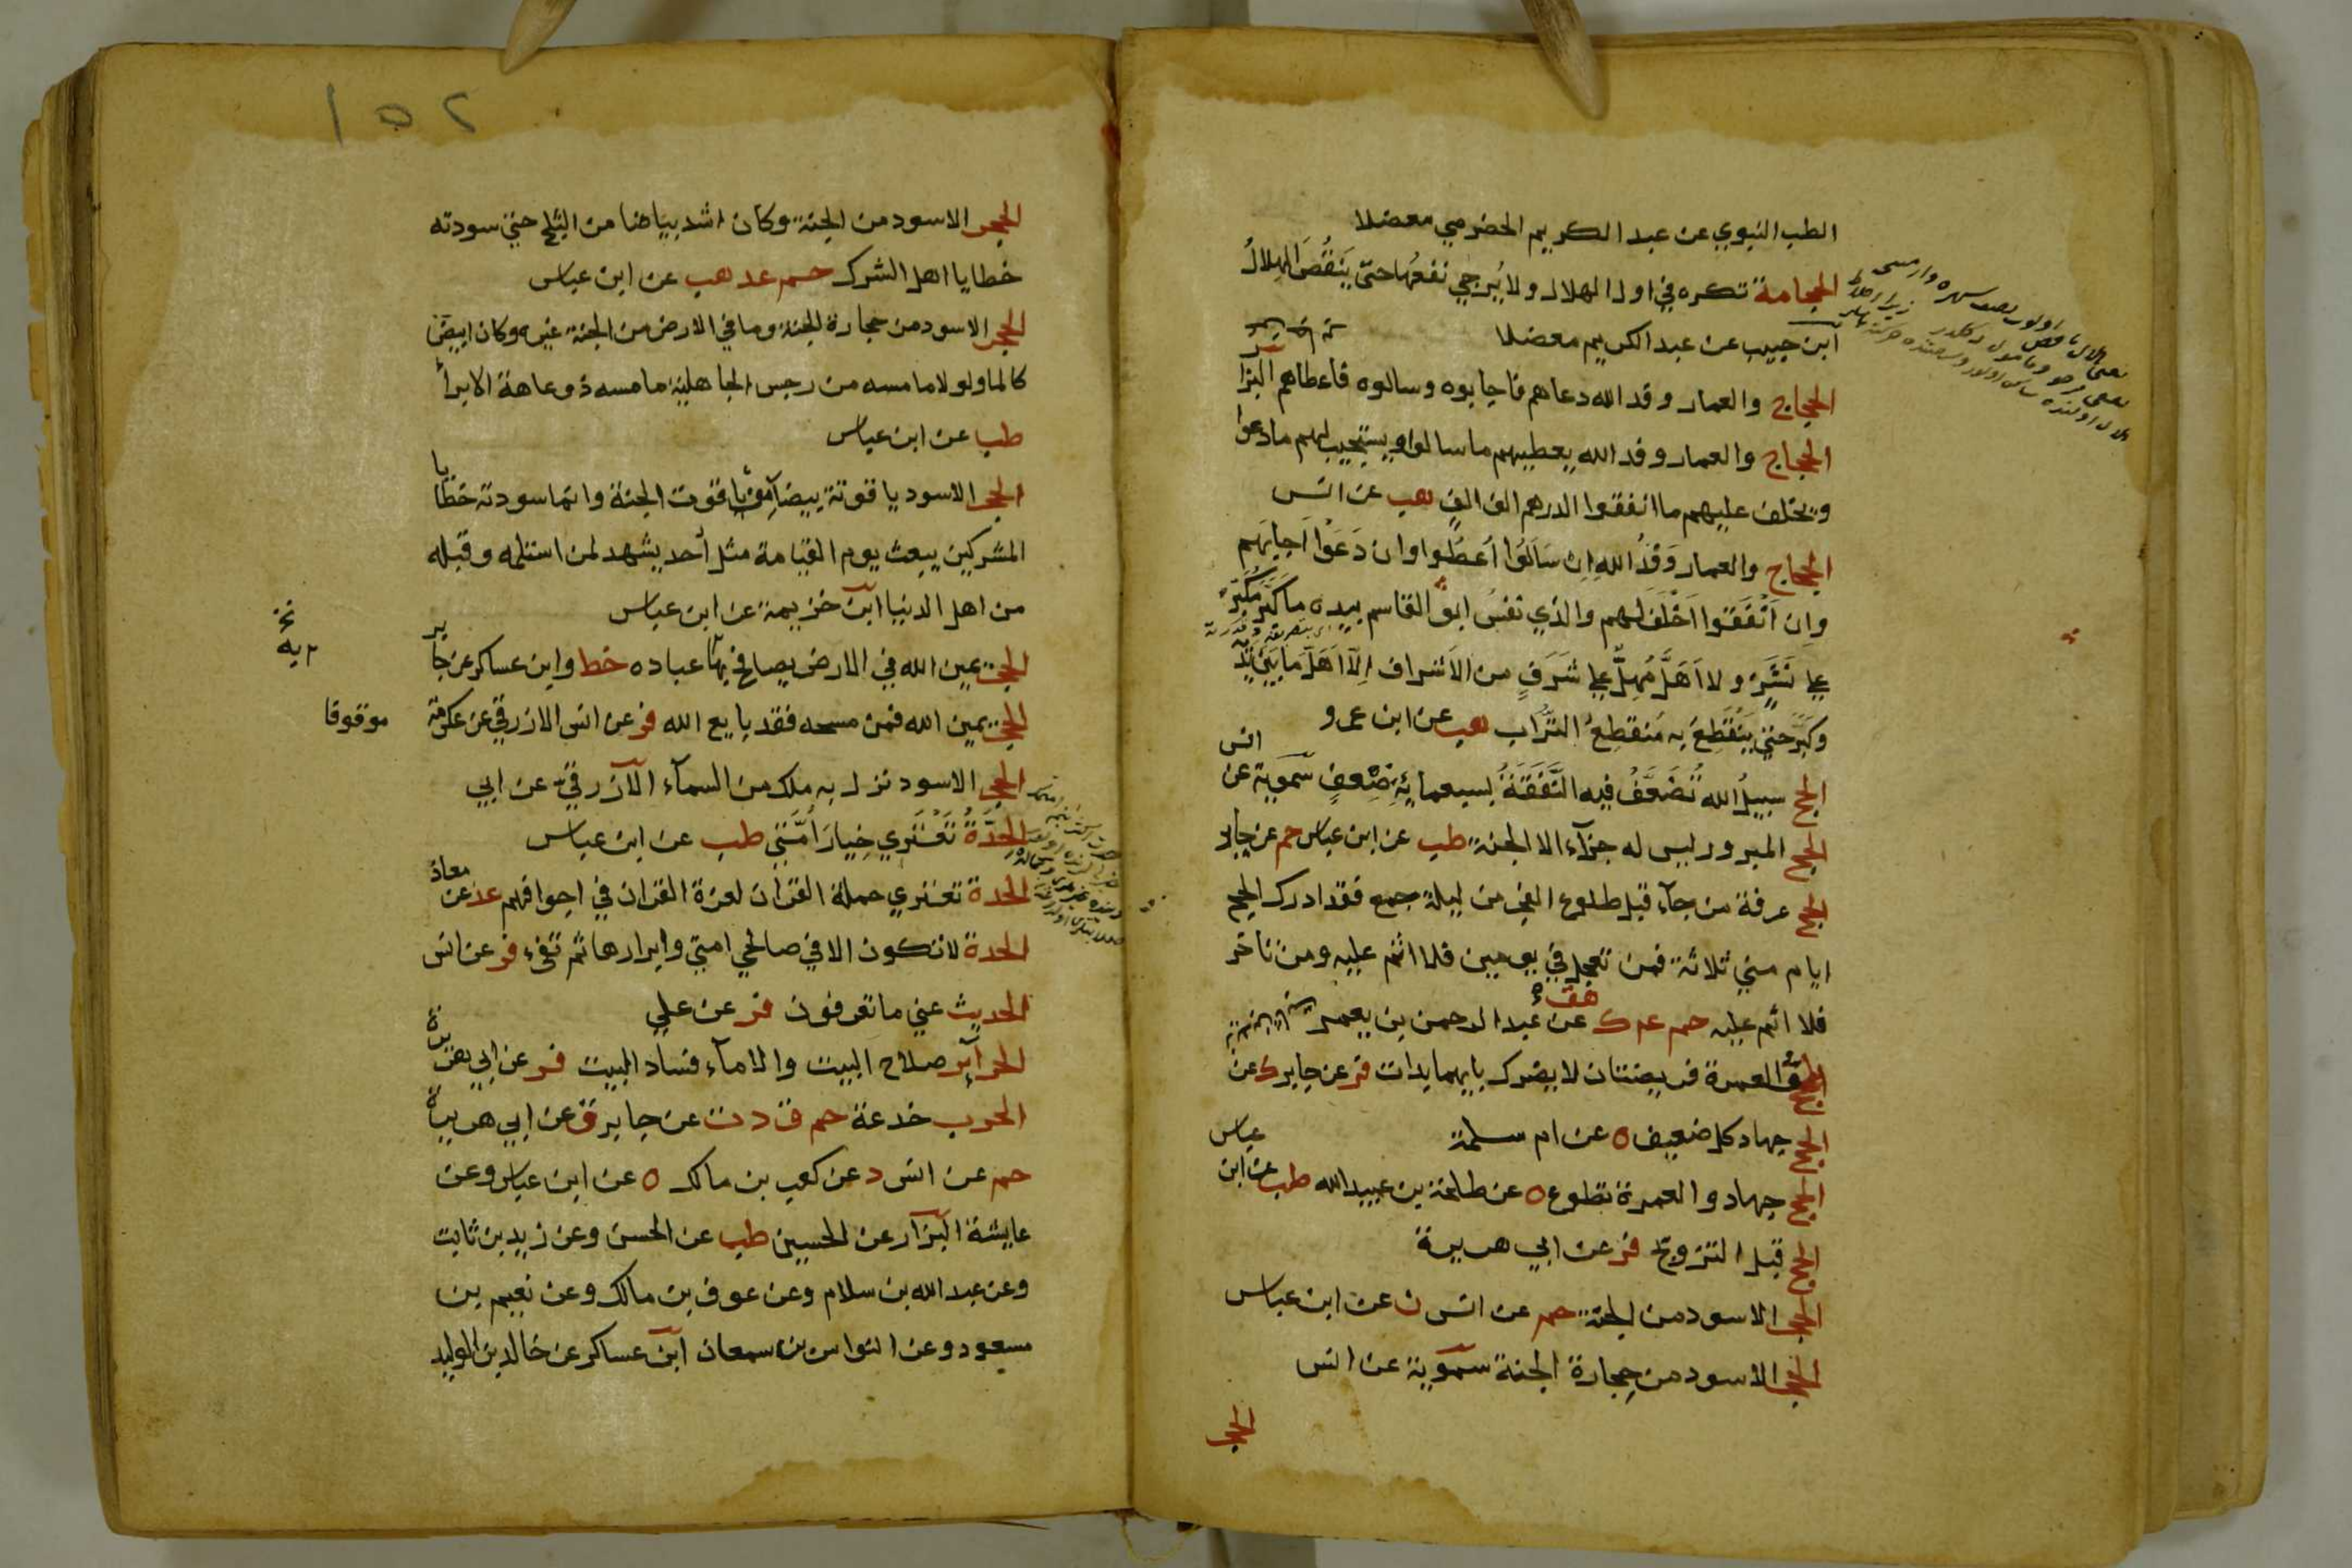 الطب النبوي عن عبد الكريم الحضرمي معضلا
الحجامة تكره في اول الهلال ولا يُرجي نفعُها حتّى يَنقُصَ الهِلالُ
ابن حبيب عن عبد الكريم معضلا
الحجاج والعمار وفد الله دعاهم فاجابوه وسالوه فاعطاهم البزا
الحجاج والعمار وفد الله يعطيهم ما سالوا ويستجيب لهم ما دعوا
ويخلف عليهم ما انفقوا الدرهم الف الفٍ هب عن انس
الحجاج والعمار وَفْدُ اللهِ اِن سَاَلُوا اُعطُوا وان دَعَوْا اَجابَهم
وان اَنْفَقَوُا اَخْلَفَ لهم والذي نفسُ ابو القاسم بيده ما كَبَّرَ مُكَبِّرٌ
على نَشَزٍ ولا اَهَلَّ مُهِلٌّ على شَرَفٍ من الاَشراف اِلّا اَهَلَّ ما بَيْنَ يَدَيْه
وكَبَّرَ حتى يَنْقَطِعَ به مُنقطِعُ التُّرَاب هب عن ابن عمرو
الحج سبيلُ الله تُضَعَّفُ فيه النَّفَقَةُ بسبعمايةِ ضِعفٍ سمويه عن انس
الحج المبرور ليس له جزآء الا الجنة طب عن ابن عباس حم عن جابر
الحج عرفة من جآء قبل طلوع الفجر من ليلة جمع فقد ادرك الحج
ايام منى ثلاثة فمن تعجل في يومين فلا اثم عليه ومن تاخر
فلا اثم عليه حم عم ك هق عن عبد الرحمن بن يعمر
الحج والعمرة فريضتان لا يضرك بايهما بدات فر عن جابر ك عن
الحج جهاد كل ضعيف ه عن ام سلمة
الحج جهاد والعمرة تطوع ه عن طلحة بن عبيد الله طب عن ابن عباس
الحج قبل التزوج فر عن ابي هريرة
الحجر الاسود من الجنة حم عن انس ن عن ابن عباس
الحجر الاسود من حِجارة الجنة سمويه عن انس
الحجر
١٥٢
الحجر الاسود من الجنة وكان اشد بياضا من الثلج حتى سودته
خطايا اهل الشرك حم عد هب عن ابن عباس
الحجر الاسود من حجارة الجنة وما في الارض من الجنة غيره وكان ابيض
كالما ولولا ما مسه من رجس الجاهلية ما مسه ذو عاهة الا برأ
طب عن ابن عباس
الحجر الاسود ياقوتة بيضآء من ياقوت الجنة وانما سودته خطايا
المشركين يبعث يوم القيامة مثل أحد يشهد لمن استلمه وقبله
من اهل الدنيا ابن خزيمة عن ابن عباس
الحجر يمين الله في الارض يصافح بها عباده خط وابن عساكر عن جابر
الحجر يمين الله فمن مسحه فقد بايع الله فر عن انس الازرقي عن عكرمة موقوفا
الحجر الاسود نزل به ملك من السمآء الازرقي عن ابي
الحِدَّةُ تَعْتَري خِيارَ اُمَّتي طب عن ابن عباس
الحدة تعتري حملة القرآن لعزة القران في اجوافهم عد عن معاذ
الحدة لا تكون الا في صالحي امتي وابرارها ثم تفيء فر عن انس
الحديث عني ما تعرفون فر عن علي
الحرآئر صلاح البيت والامآء فساد البيت فر عن ابي هريرة
الحرب خدعة حم ق د ت عن جابر ق عن ابي هريرة
حم عن انس د عن كعب بن مالك ه عن ابن عباس وعن
عايشة البزار عن الحسين طب عن الحسن وعن زيد بن ثابت
وعن عبد الله بن سلام وعن عوف بن مالك وعن نعيم بن
مسعود وعن النواس بن سمعان ابن عساكر عن خالد بن الوليد